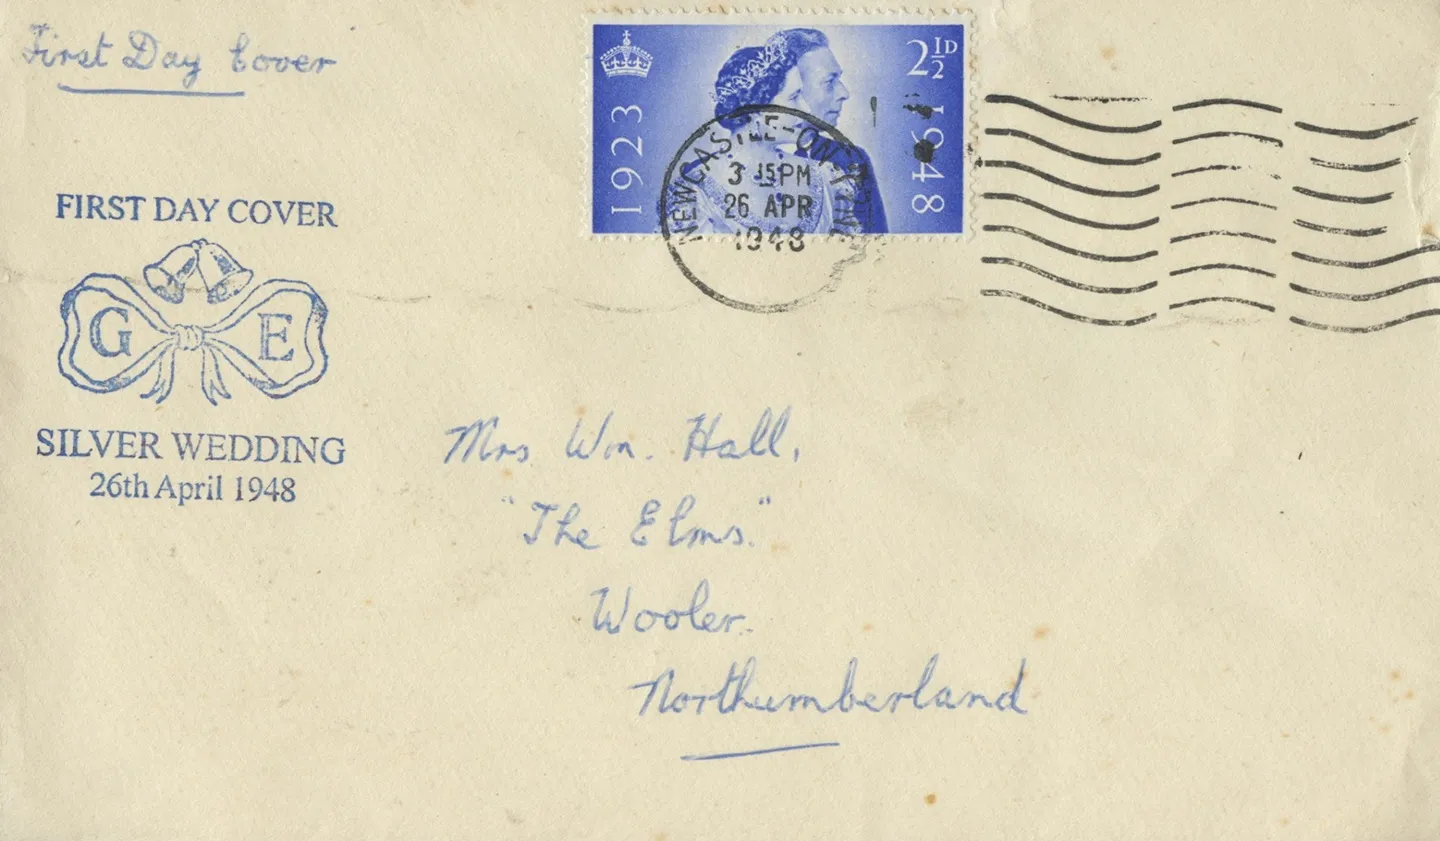 First Day Cover
1923
2½D
1948
NEWCASTLE-ON-TYNE
3 15 PM
26 APR
1948
FIRST DAY COVER
G E
SILVER WEDDING
26th April 1948
Mrs Wm. Hall,
"The Elms."
Wooler.
Northumberland